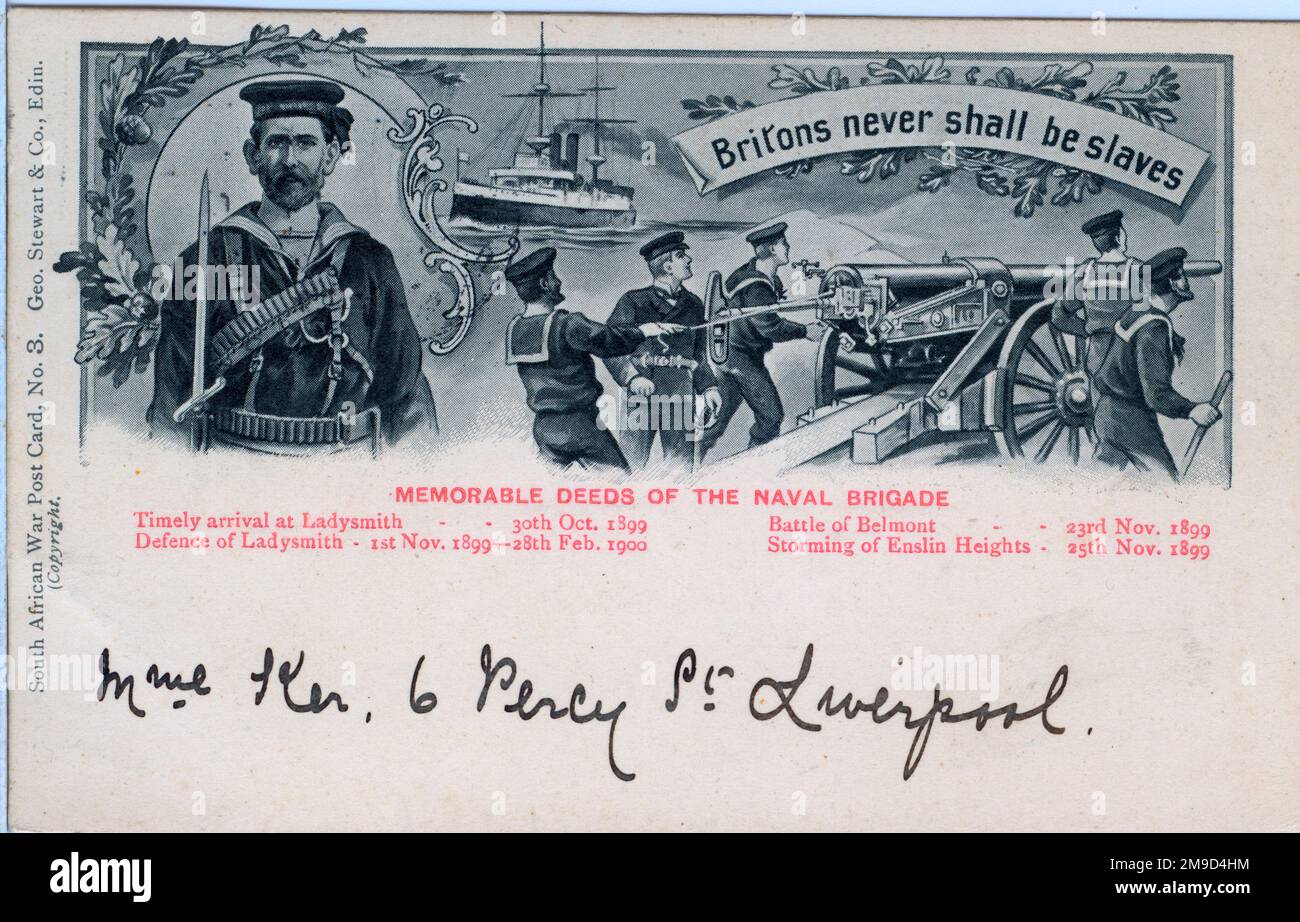 South African War Post Card, No. 3. Geo. Stewart & Co., Edin.
(Copyright.
Britons never shall be slaves
MEMORABLE DEEDS OF THE NAVAL BRIGADE
Timely arrival at Ladysmith - - 30th Oct. 1899
Defence of Ladysmith - 1st Nov. 1899—28th Feb. 1900
Battle of Belmont - - 23rd Nov. 1899
Storming of Enslin Heights - 25th Nov. 1899
Mme Ker, 6 Percy St Liverpool.
alamy
Image ID: 2M9D4HM
www.alamy.com